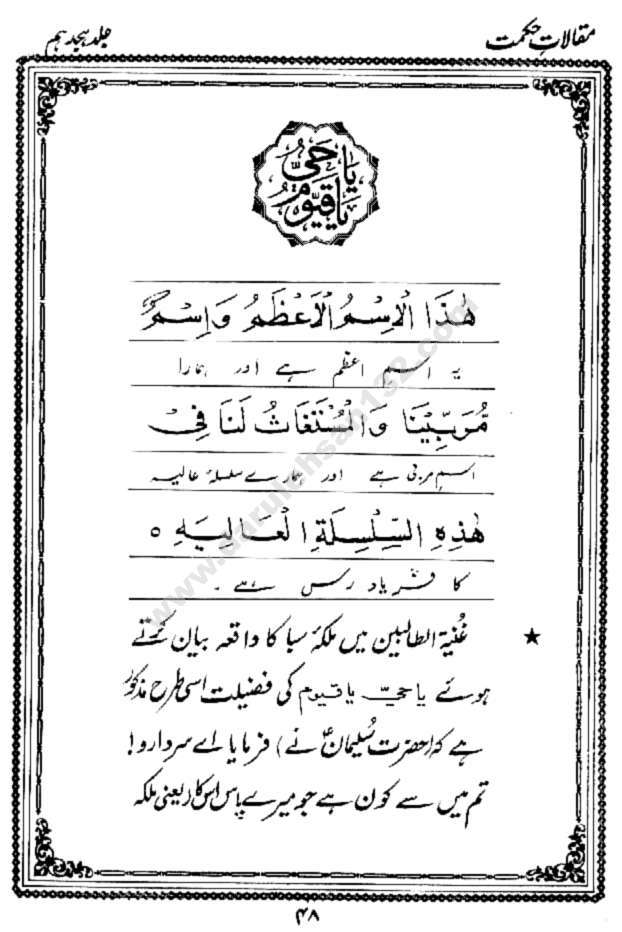 مقالاتِ حکمت
جلد ہیجدہم
یَا حَیُّ
یَا قَیُّوْمُ
هٰذَا الْاِسْمُ الْاَعْظَمُ وَاِسْمُ
یہ اسمِ اعظم ہے اور ہمارا
مُرَبِّیْنَا وَالْمُسْتَغَاثُ لَنَا فِیْ
اسمِ مربی ہے اور ہمارے سلسلۂ عالیہ
هٰذِهِ السِّلْسِلَةِ الْعَالِیَهِ ٥
کا فریاد رس ہے ۔
★ غُنیۃ الطالبین میں ملکۂ سبا کا واقعہ بیان کرتے
ہوئے یا حیّ یا قیوم کی فضیلت اسی طرح مذکور
ہے کہ (حضرت سُلیمانؑ نے) فرمایا اے سردارو!
تم میں سے کون ہے جو میرے پاس اس کا (یعنی ملکہ
۴۸
www.darulehsan132.com